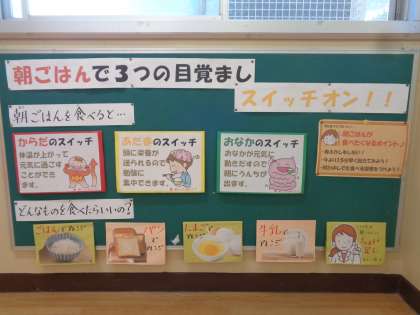 朝ごはんで３つの目覚まし
スイッチオン！！
朝ごはんを食べると…
からだのスイッチ
体温が上がって
元気に過ごす
ことができ
ます。
あたまのスイッチ
頭に栄養が
送られるので
勉強に
集中できます。
おなかのスイッチ
おなかが元気に
動きだすので
朝にうんちが
出ます。
朝ごはんが
食べたくなるポイント♪
どんなものを食べたらいいの？
ごはんでアレンジ
パンでアレンジ
たまごでアレンジ
牛乳でアレンジ